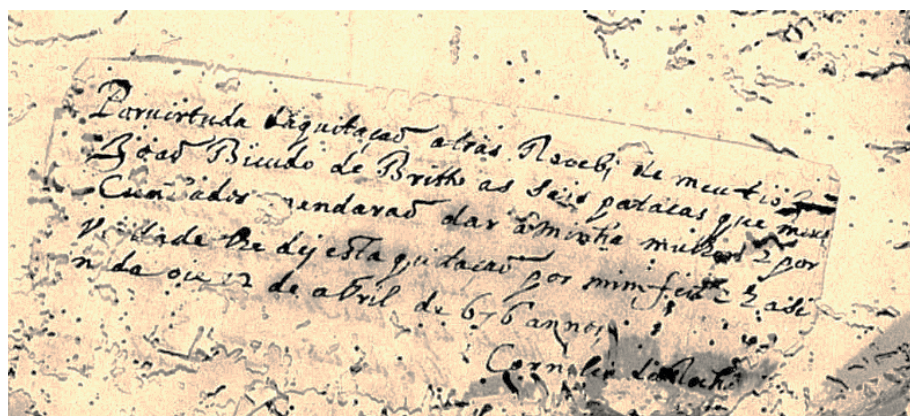 Por virtuda da quitação atras Recebi de meu tio
João Bicudo de Britto as seis patacas que meus
Cunhados mandaraõ dar a minha mulher por
verdade lhe dej esta quitacaõ por mim feita asi
nada oie 12 de abril de 676 annos
Cornelio da Rocha